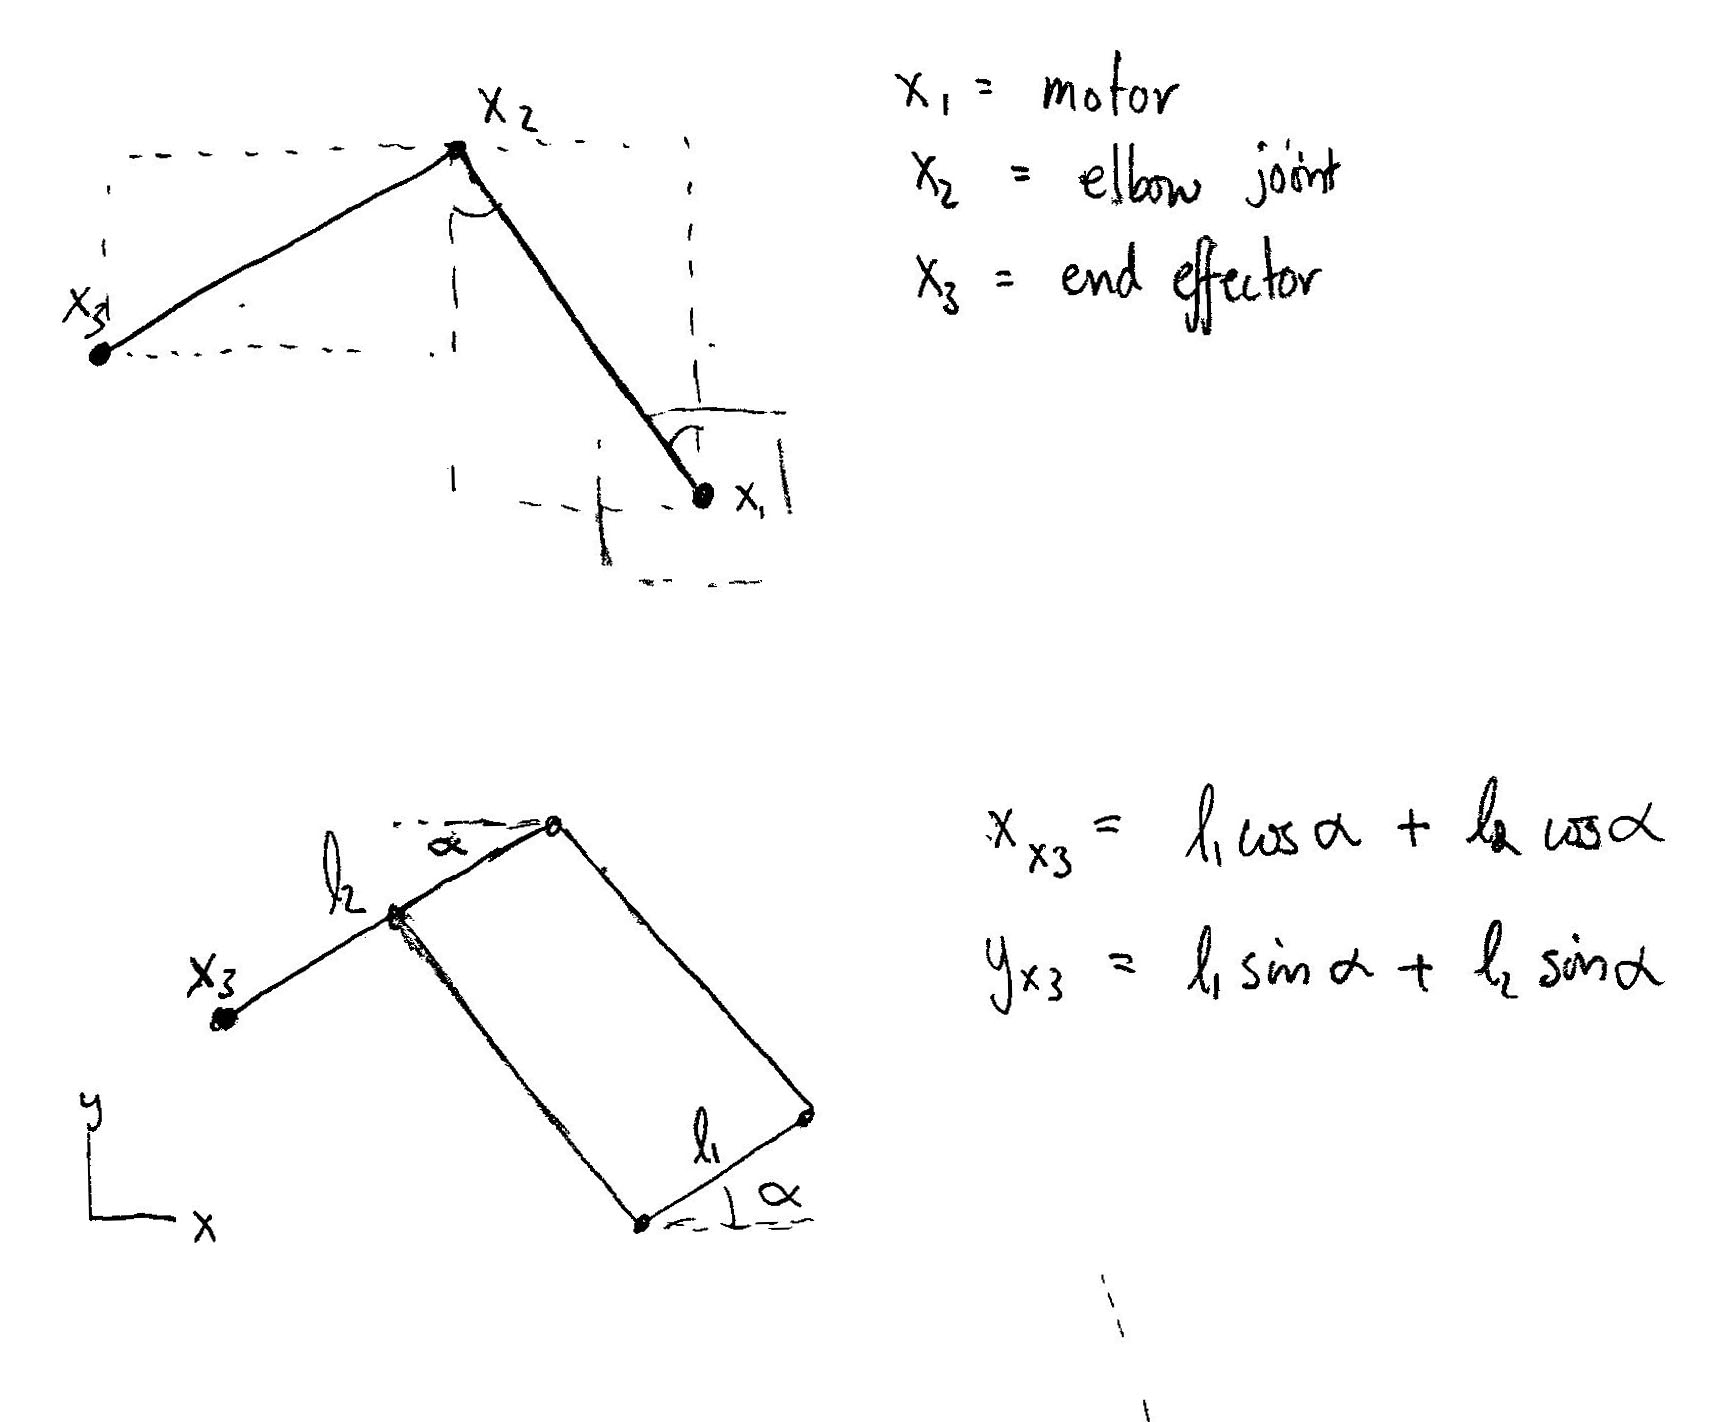 x₂
x₃
x₁
x₁ = motor
x₂ = elbow joint
x₃ = end effector
α
l₂
x₃
l₁
α
y
x
x_x3 = l₁ cos α + l₂ cos α
y_x3 = l₁ sin α + l₂ sin α